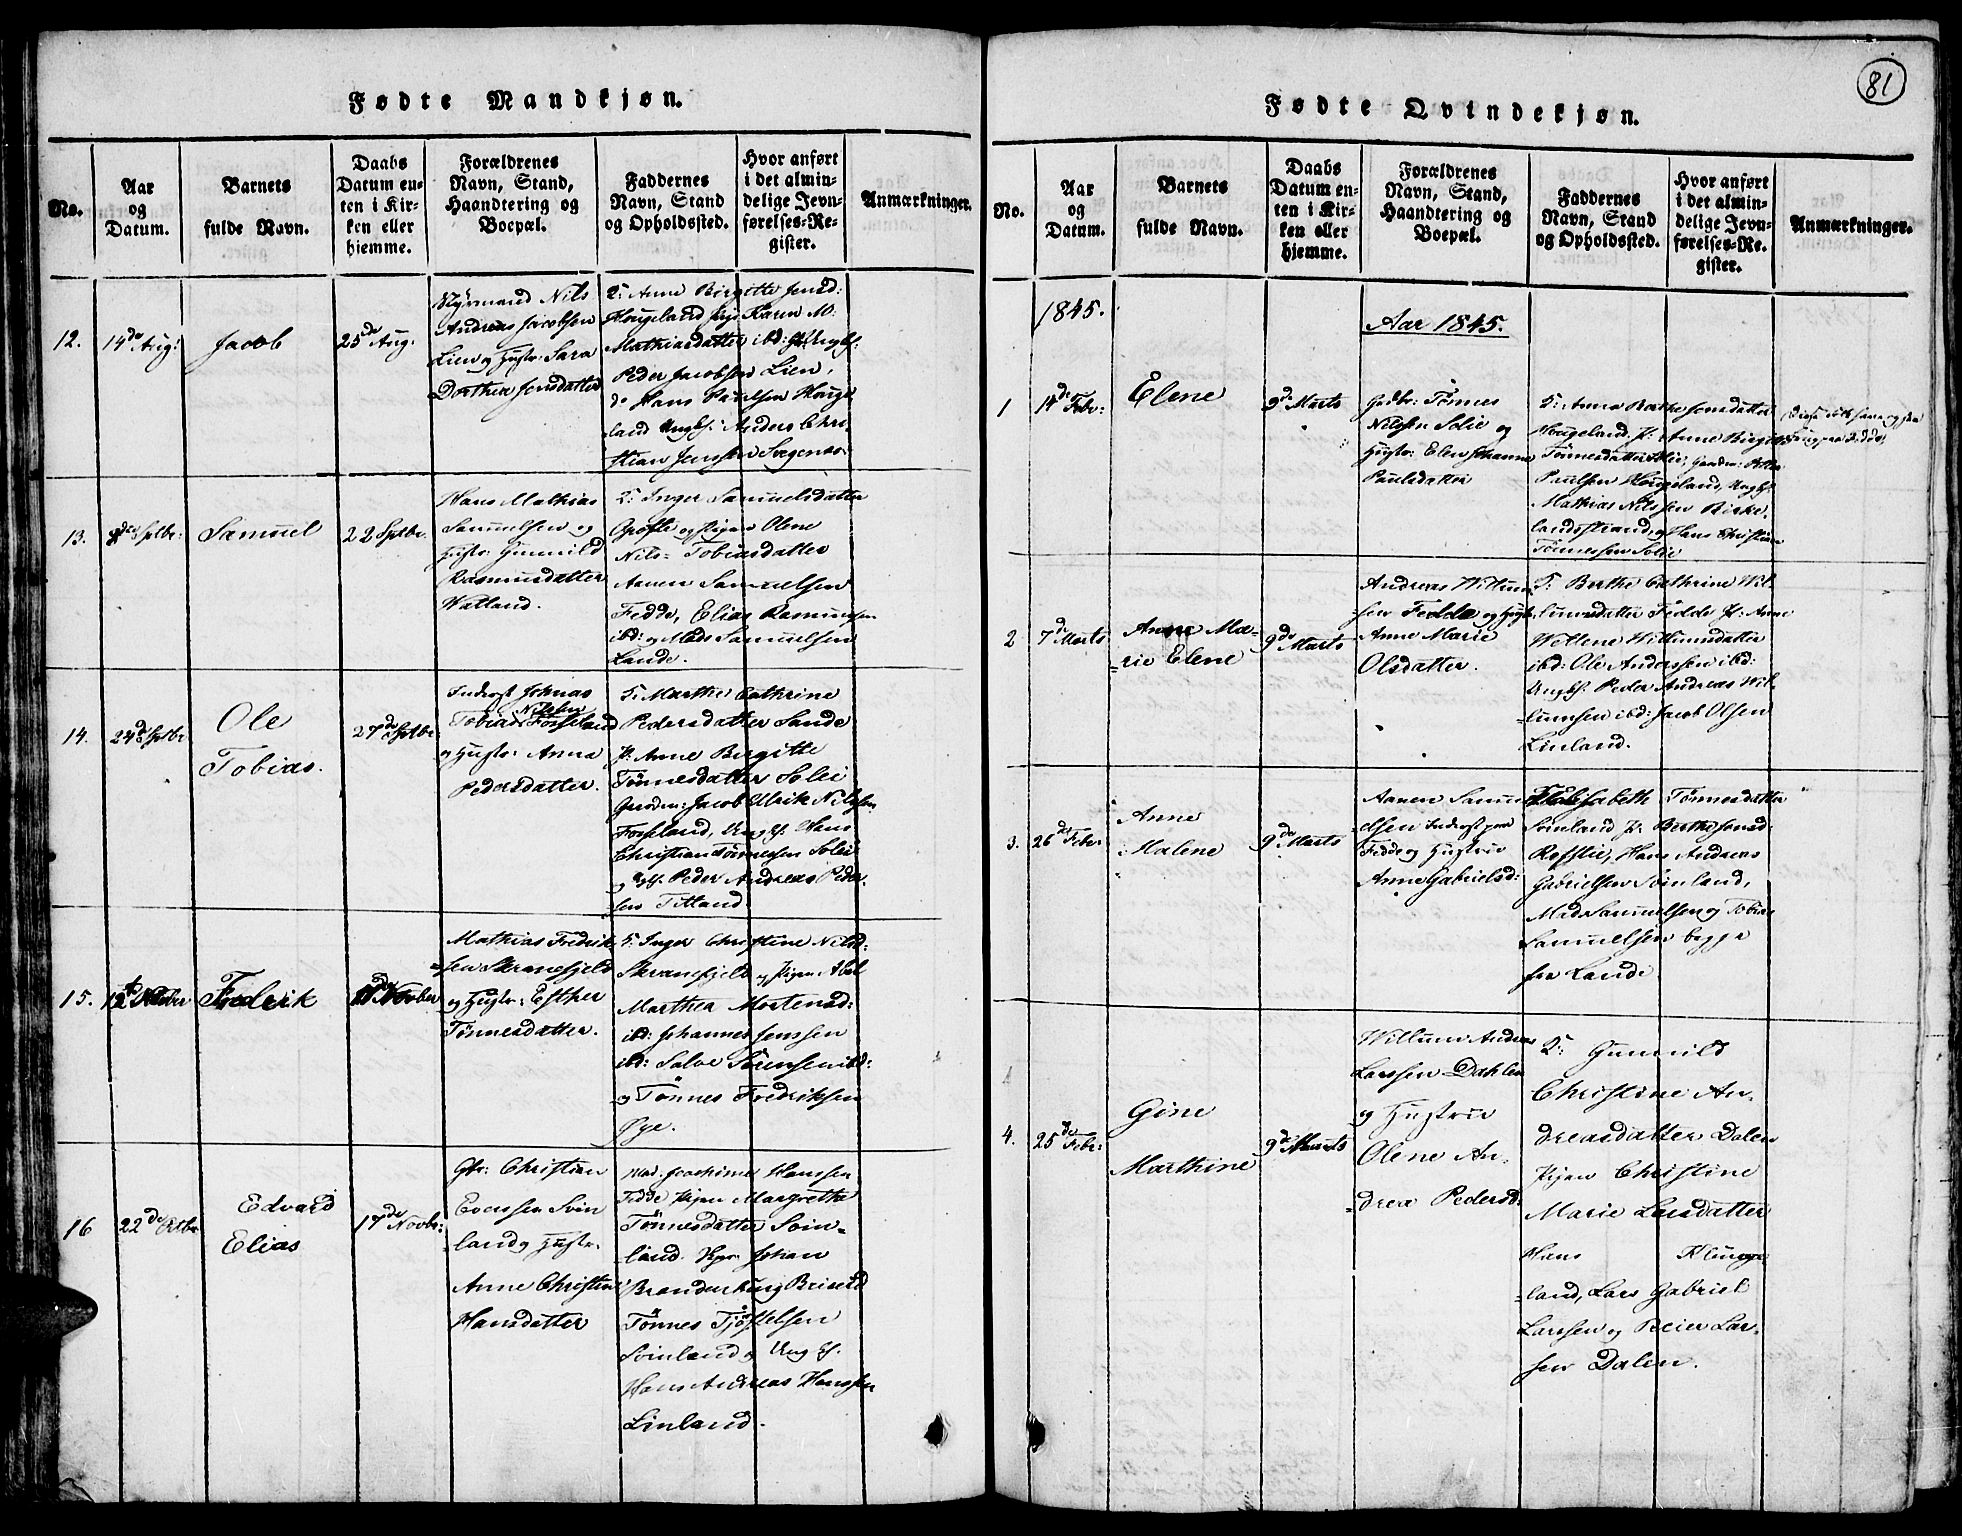 81
Fødte Mandkjøn.
No.
Aar
og
Datum.
Barnets
fulde Navn.
Daabs
Datum en-
ten i Kir-
ken eller
hjemme.
Forældrenes
Navn, Stand,
Haandtering og
Boepæl.
Faddernes
Navn, Stand
og Opholdssted.
Hvor anført
i det almin-
delige Jevn-
førelses-Re-
gister.
Anmærkninger.
12.
14de Aug:
Jacob
25de Aug.
Nils
Andreas Jacobsen
Lien og Hustr: Sara
Dorthea Jensdatter
2: Anne Birgitte Jensd:
Hougeland Karen M:
Mathiasdatter ibd:
Peder Jacobsen Lien,
Hans Paulsen Houge
land Ungks. Anders Chri-
stian Jenssen
13.
Septbr:
Samuel
22 Septbr.
Hans Mathias
Samuelsen og
Hustr: Gunnild
Rasmusdatter
Watland.
2: Inger Samuelsdatter
og Pigen Olene
Tobiasdatter
Aanen Samuelsen
Fedde, Elias Rasmussen
ibd: og Mads Samuelsen
Lande.
14.
24de Septbr
Ole
Tobias.
27de Septbr
Inderst Johnas
Tobias Nilsen Forseland
og Hustr. Anna
Pedersdatter.
F: Marthe Cathrine
Pedersdatter Sande
P: Anne Birgitte
Tønnesdatter Solei
Jacob Ulrik Nilssen
Forseland, Ungks. Hans
Christian Tønnessen Solei
og Peder Andreas Peder-
sen Titland.
15.
12
Fredrik
Novber
Mathias Fredrik-
sen Skranefjeld
og Hustr: Esther
Tønnesdatter.
F: Inger Christine Nilsd:
Skranefjeld og Pigen Abel
Marthea Mortensd:
ibd: Johannes Jenssen
ibd: Salve Sørensen ibd:
og Tønnes Fredriksen
16
22de Octbr
Edvard
Elias
17de Novbr:
Gbr: Christian
Evessen Svin
land og Hustr.
Anne Christine
Hansdatter
Mad. Joachime Hanssen
Fedde Pigen Margrethe
Tønnesdatter Svin-
land. Johan
Brandenburg
Tønnes Tjøstelsen
Svinland og Ungks.
Hans Andreas Hanssen
Linland.
Fødte Qvindekjøn.
No.
Aar
og
Datum.
Barnets
fulde Navn.
Daabs
Datum en-
ten i Kir-
ken eller
hjemme.
Forældrenes
Navn, Stand,
Haandtering og
Boepæl.
Faddernes
Navn, Stand
og Opholdssted.
Hvor anført
i det almin-
delige Jevn-
førelses-Re-
gister.
Anmærkninger.
1845.
Aar 1845.
1
14de Febr:
Elene
9de Marts
Gadbr: Tønnes
Nilssen Solie og
Hustr: Elen Johanne
Paulsdatter
F: Anna Bertha Jensdatter
Hougeland. P: Anne Birgitte
Tønnesdatter Solie, Gaardm: Peder
Paulsen Hougeland, Ungks:
Mathias Nilssen Birke-
landsstrand, og Hans Christian
Tønnessen Solie
2
7de Marts
Anne Ma-
rie Elene
9de Marts
Andreas Willum
sen Fedde og Hustr.
Anne Marie
Olsdatter.
F: Berthe Cathrine Wil-
lumsdatter Fedde P: Anne
Wellene Willumsdatter
ibd: Ole Anderssen ibd:
Ungks. Peder Andreas Wil-
lumsen ibd: Jacob Olsen
Linland.
3.
26de Febr
Anne
Malene
9de Marts
Aanen Samu-
elsen Inderst paa
Fedde og Hustrue
Anne Gabrielsd:
Elisabeth Tønnesdatter
Svinland P: Berthe Jensd:
Rofstie, Hans Andreas
Gabrielsen Svinland,
Mads Samuelsen og Tobias
Samuelsen begge
fra Lande
4.
25de Febr:
Gine
Marthine
9de Marts
Willum Andreas
Larssen Dahlen
og Hustrue
Olene An-
drea Pedersd:
2: Gunnild
Christine An-
dreasdatter Dalen
Pigen Christine
Marie Larsdatter
Hans Klunge-
land, Lars Gabriel
Larssen og Reier Lar-
sen Dalen.